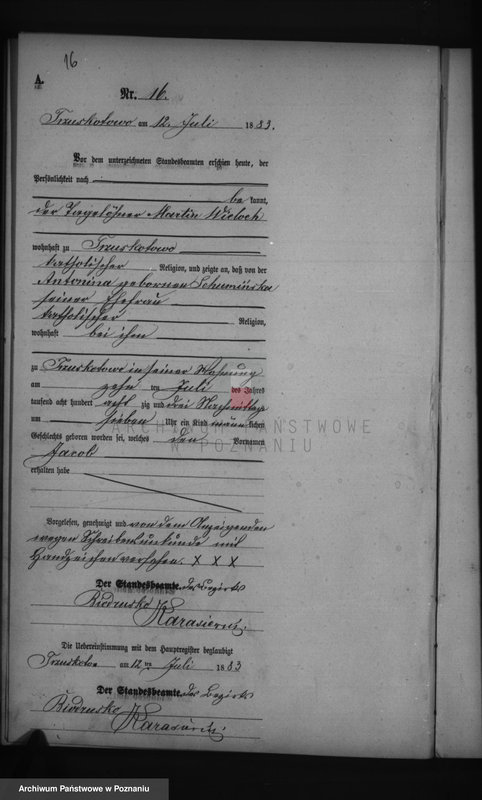 16
A.
Nr. 16.
Truskotowo am 12. Juli 1883.
Vor dem unterzeichneten Standesbeamten erschien heute, der
Persönlichkeit nach
be kannt,
der Tagelöhner Martin Wieloch
wohnhaft zu Truskotowo
katholischer Religion, und zeigte an, daß von der
Antonina geborenen Schuminska
seiner Ehefrau
katholischer Religion,
wohnhaft bei ihm
zu Truskotowo in seiner Wohnung
am zehn ten Juli des Jahres
tausend acht hundert acht zig und drei Nachmittags
um sieben Uhr ein Kind männ lichen
Geschlechts geboren worden sei, welches den Vornamen
Jacob
erhalten habe
Vorgelesen, genehmigt und von dem Anzeigenden
wegen Schreibensunkunde mit
Handzeichen versehen. X X X
Der Standesbeamte des Bezirks
Biedrusko
Die Uebereinstimmung mit dem Hauptregister beglaubigt
am 12ten Juli 1883
Der Standesbeamte des Bezirks
Biedrusko
ARCHIWUM PAŃSTWOWE
W POZNANIU
Archiwum Państwowe w Poznaniu